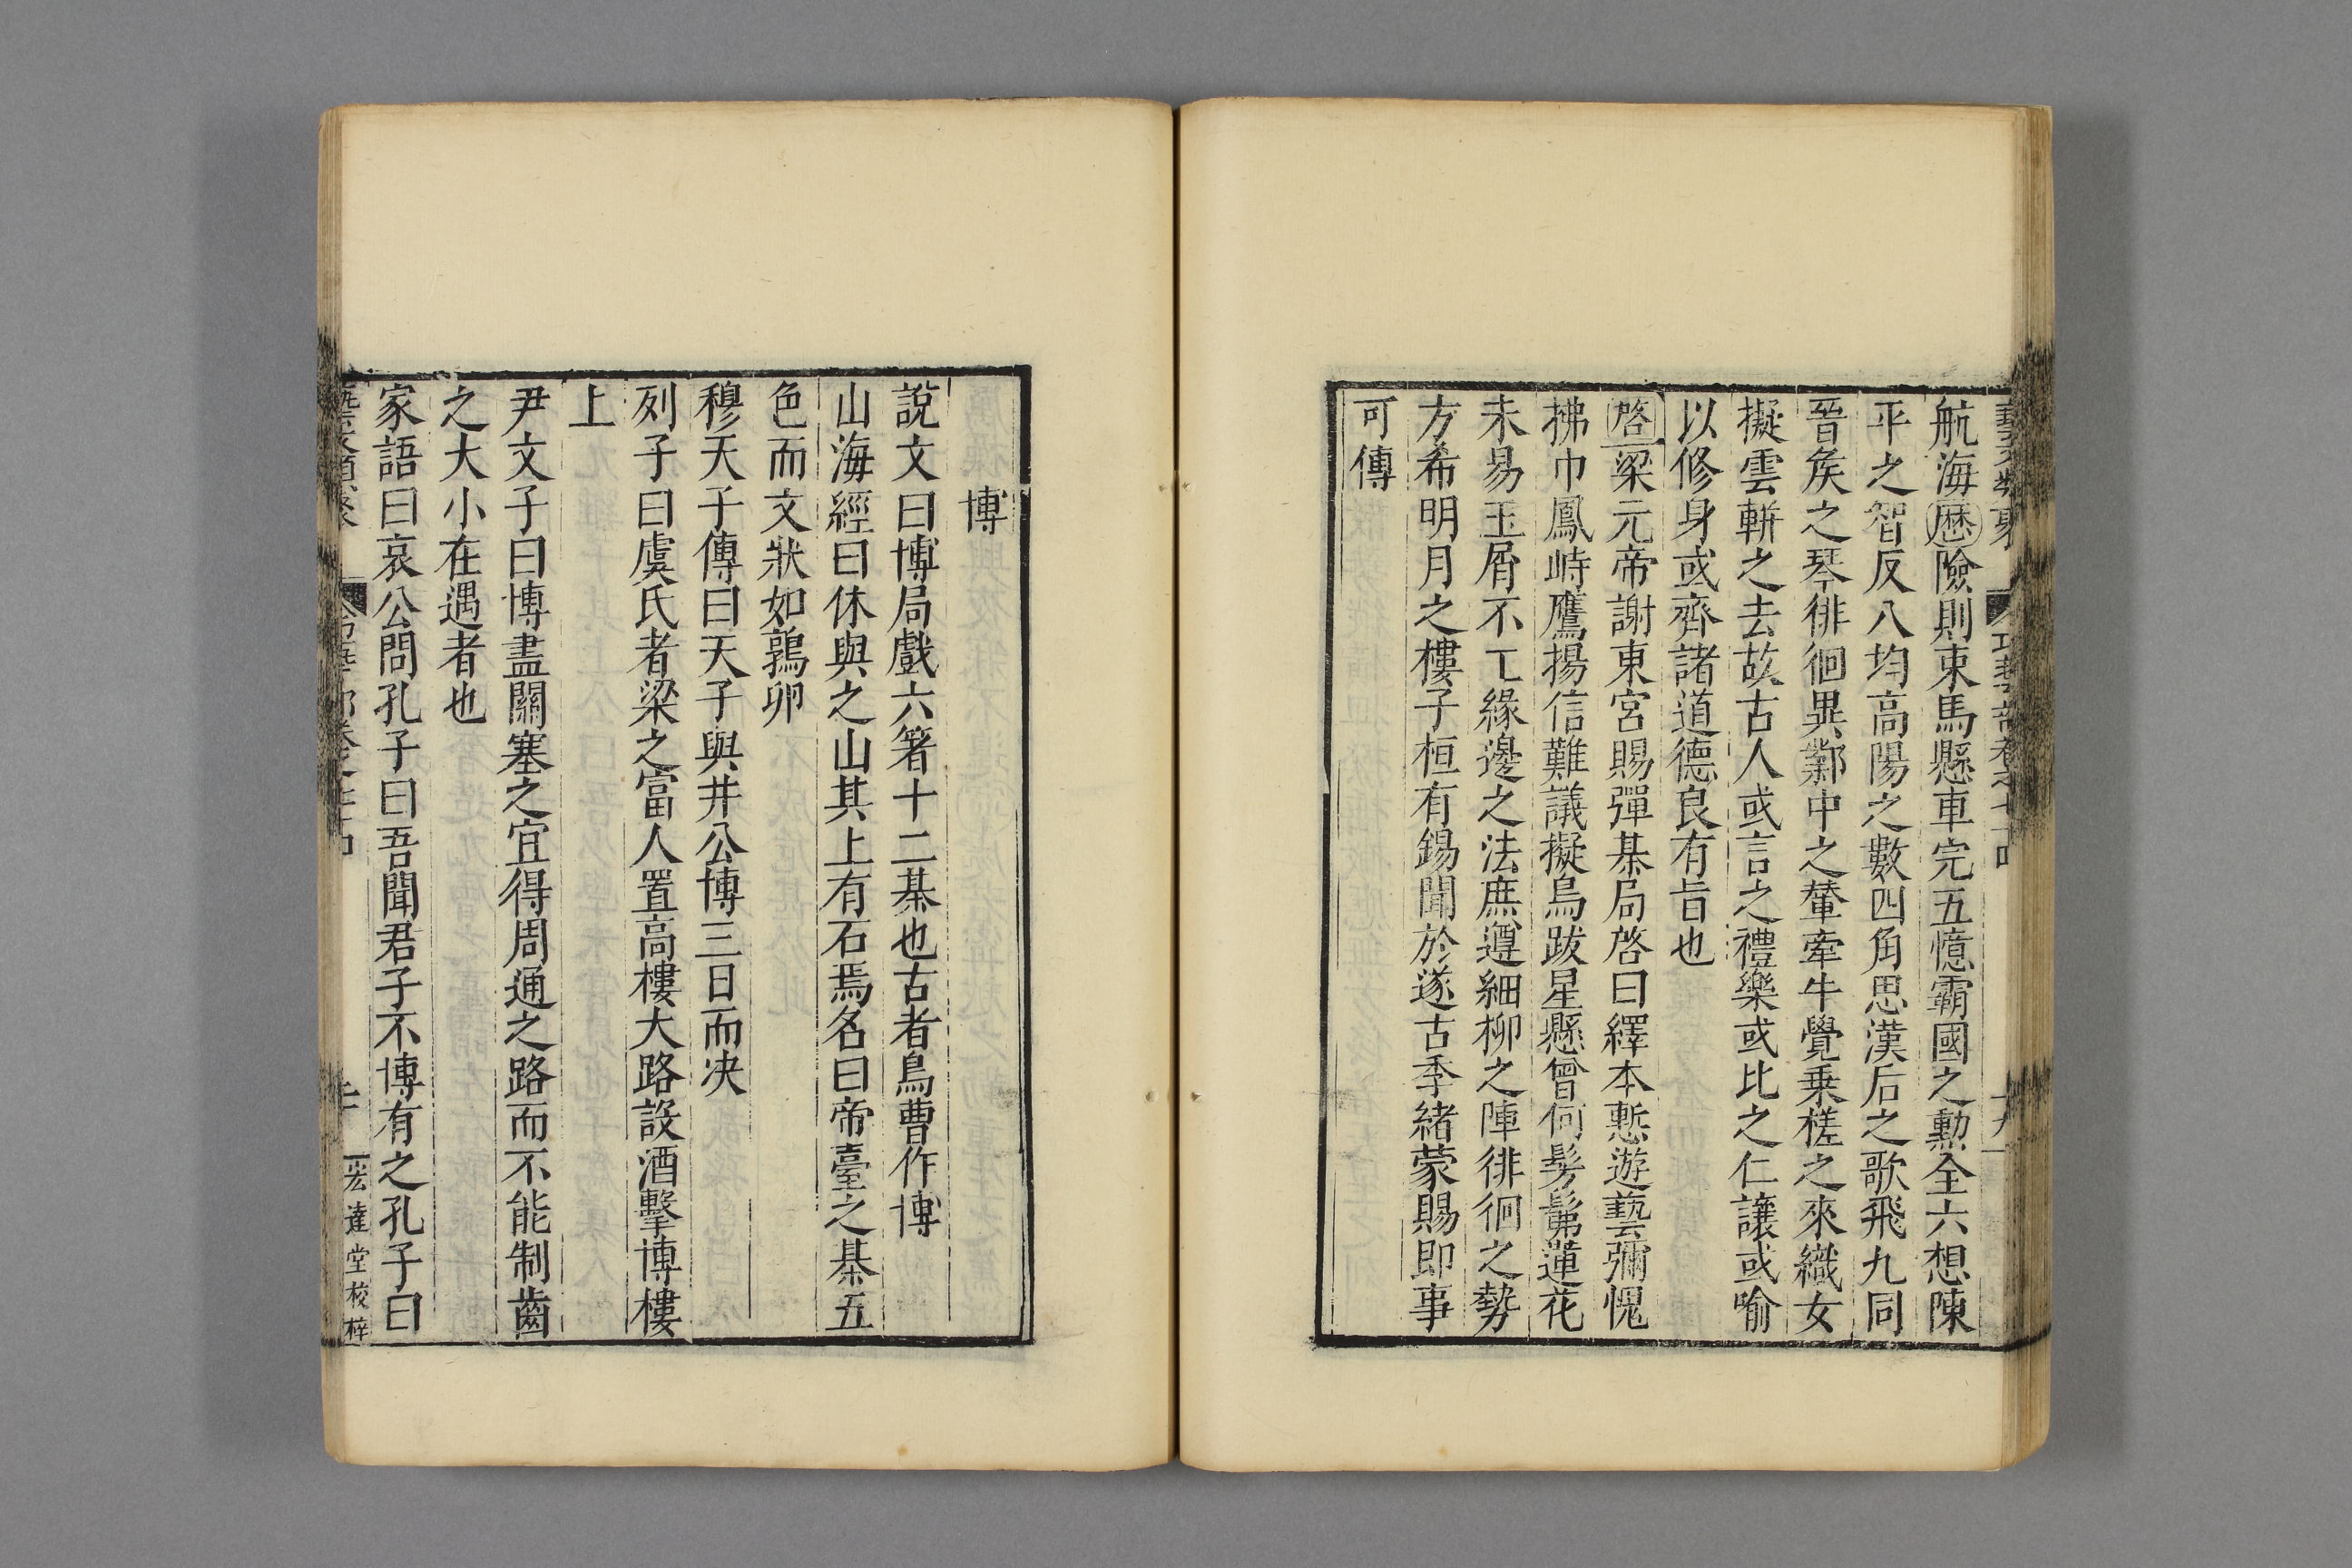 航海歷險則束馬懸車完五憶霸國之勳全六想陳
平之智反八均高陽之數四角思漢后之歌飛九同
晉矦之琴徘徊異鄴中之輦牽牛覺乗槎之來織女
擬雲軿之去故古人或言之禮樂或比之仁讓或喻
以修身或齊諸道德良有旨也
啓梁元帝謝東宮賜彈棊局啓曰繹本慙遊藝彌愧
拂巾鳳峙鷹揚信難議擬鳥跋星懸曾何髣髴蓮花
未易玉屑不工緣邊之法庶遵細柳之陣徘徊之勢
方希明月之樓子桓有錫聞於遂古季緒蒙賜即事
可傳
博
說文曰博局戲六箸十二棊也古者烏曹作博
山海經曰休與之山其上有石焉名曰帝臺之棊五
色而文狀如鶉卵
穆天子傳曰天子與井公博三日而决
列子曰虞氏者梁之富人置高樓大路設酒擊博樓
上
尹文子曰博盡關塞之宜得周通之路而不能制齒
之大小在遇者也
家語曰哀公問孔子曰吾聞君子不博有之孔子曰
宏達堂校梓